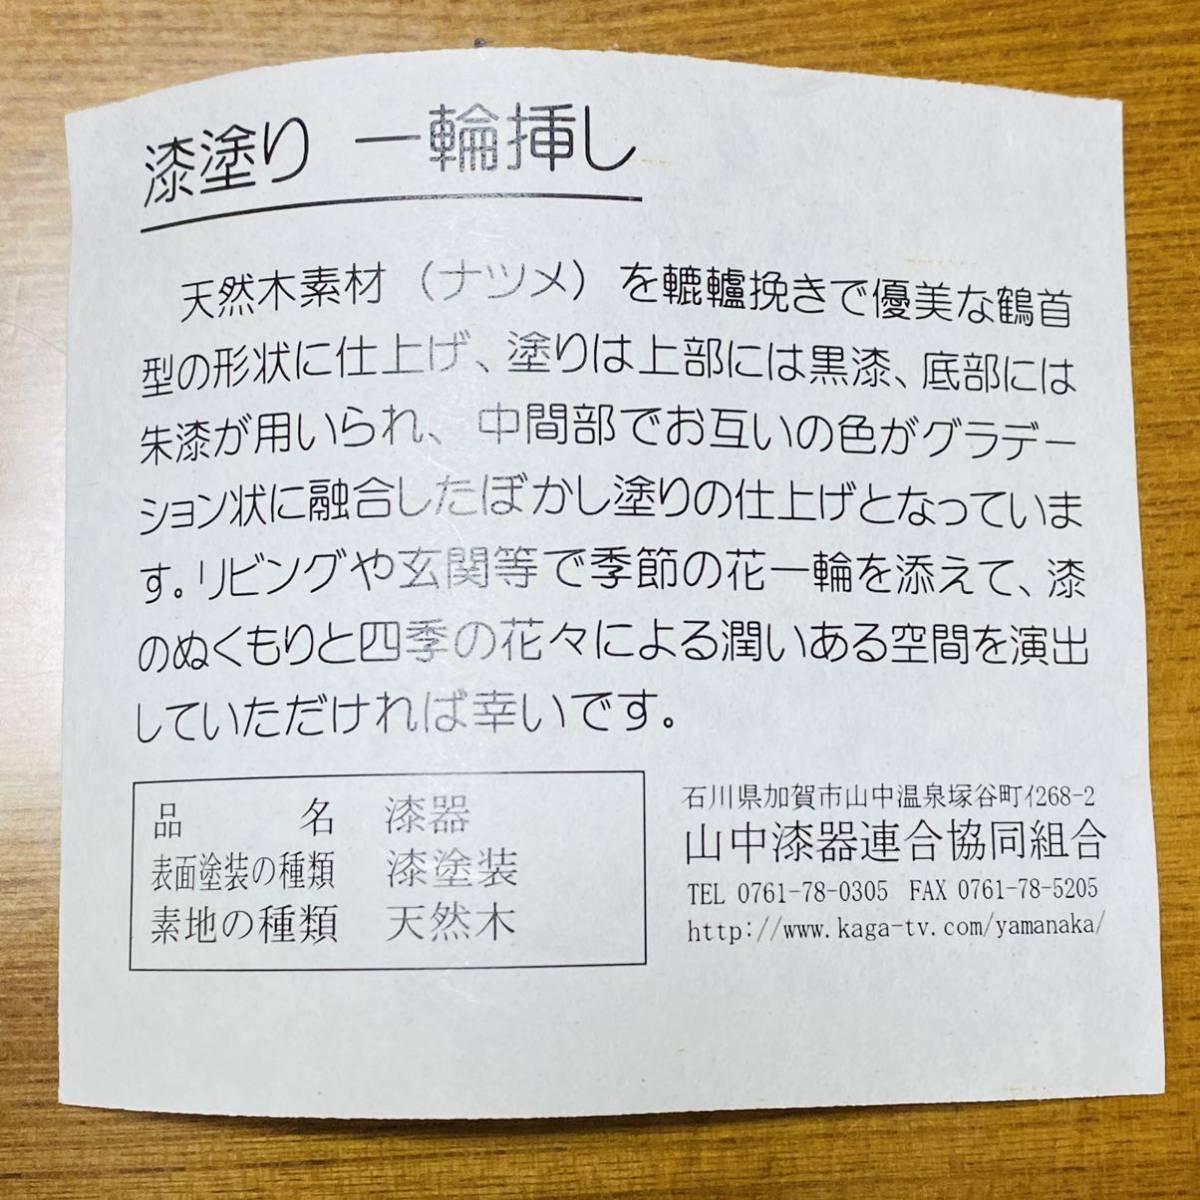 漆塗り 一輪挿し
天然木素材（ナツメ）を轆轤挽きで優美な鶴首
型の形状に仕上げ、塗りは上部には黒漆、底部には
朱漆が用いられ、中間部でお互いの色がグラデー
ション状に融合したぼかし塗りの仕上げとなっていま
す。リビングや玄関等で季節の花一輪を添えて、漆
のぬくもりと四季の花々による潤いある空間を演出
していただければ幸いです。
品名 漆器
表面塗装の種類 漆塗装
素地の種類 天然木
石川県加賀市山中温泉塚谷町イ268-2
山中漆器連合協同組合
TEL 0761-78-0305 FAX 0761-78-5205
http://www.kaga-tv.com/yamanaka/